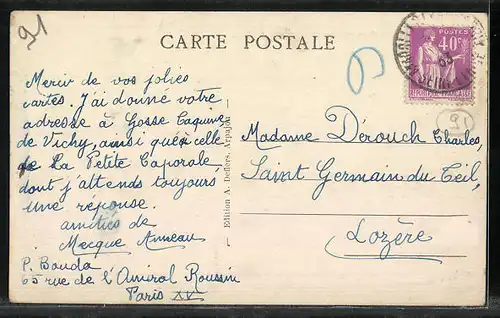 91
CARTE POSTALE
POSTES
40c
Merci de vos jolies
cartes. J'ai donné votre
adresse à Gosse Caquine
de Vichy, ainsi que celle
de La Petite Caporale
dont j'attends toujours
une réponse.
amitiés de
Mecque Anneau
P. Bouda
65 rue de l'Amiral Roussin
Paris XV
Edition A. Deffers, Arpajon
91
Madame Dérouch Charles,
Saint Germain du Teil,
Lozère